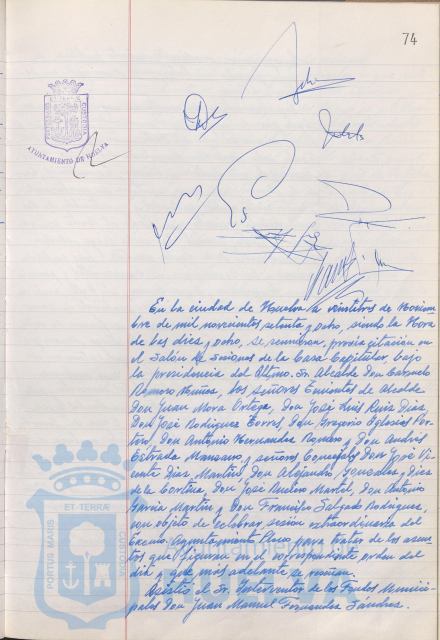 74
AYUNTAMIENTO DE HUELVA
En la ciudad de Huelva a veintitres de Noviem-
bre de mil novecientos setenta y ocho, siendo la hora
de las diez y ocho, se reunieron, previa citación en
el Salón de Sesiones de la Casa Capitular, bajo
la presidencia del Iltmo. Sr. Alcalde Don Carmelo
Romero Núñez, los señores Tenientes de Alcalde
Don Juan Mora Ortega, Don José Luis Ruiz Díaz,
Don José Rodríguez Torres, Don Gregorio Iglesias Por-
Don Antonio Hernández Romero y Don Andrés
Estrada Manzano y señores Concejales Don José Vi-
cente Díaz Martín, Don Alejandro González, Díaz
de la Cortina, Don José Martel, Don Antonio
García Martín y Don Francisco Salgado Rodríguez,
con objeto de celebrar sesión extraordinaria del
Excmo. Ayuntamiento Pleno para tratar de los asun-
tos que figuran en el correspondiente orden del
día y que más adelante se reseñan.
Asistió el Sr. Interventor de los Fondos Munici-
pales Don Juan Manuel Fernández Sánchez.
PORTUS MARIS
ET TERRÆ
CUSTODIA